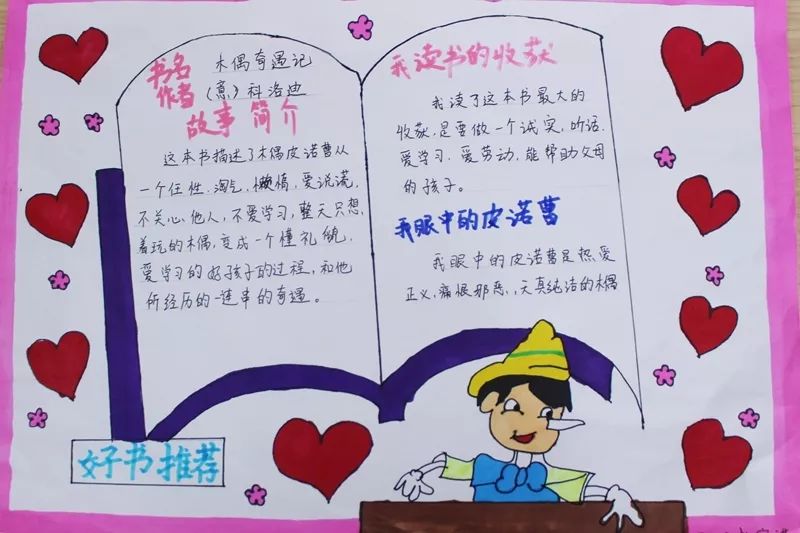 书名 木偶奇遇记
作者 (意)科洛迪
故事简介
这本书描述了木偶皮诺曹从
一个任性.淘气,懒惰,爱说谎,
不关心他人,不爱学习,整天只想
着玩的木偶,变成一个懂礼貌,
爱学习的好孩子的过程,和他
所经历的一连串的奇遇。
我读书的收获
我读了这本书最大的
收获,是要做一个诚实,听话.
爱学习.爱劳动,能帮助父母
的孩子。
我眼中的皮诺曹
我眼中的皮诺曹是热爱
正义,痛恨邪恶,天真纯洁的木偶
好书推荐